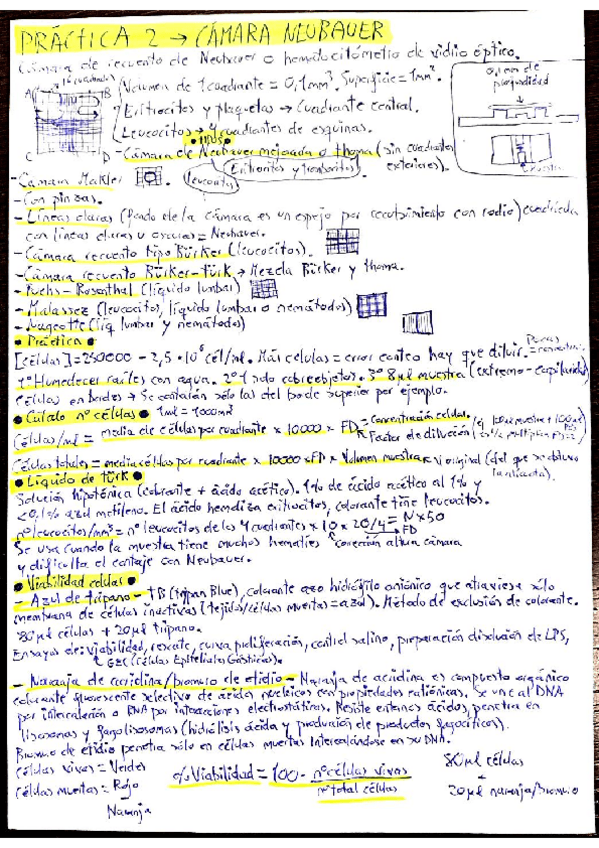 PRÁCTICA 2 → CÁMARA NEUBAUER
Cámara de recuento de Neubauer o hemocitómetro de vidrio óptico.
Volumen de 1 cuadrante = 0,1mm³. Superficie = 1mm².
0,1 mm de profundidad
A B
Eritrocitos y plaquetas → Cuadrante central.
Leucocitos → 4 cuadrantes de esquinas.
C D
• TIPOS •
- Cámara de Neubauer mejorada o thoma (sin cuadrantes exteriores).
Leucocitos
Eritrocitos y trombocitos
- Cámara Makler
- Con pinzas.
- Líneas claras (Fondo de la cámara es un espejo por recubrimiento con rodio) cuadrícula
con líneas claras u oscuras = Neubauer.
- Cámara recuento tipo Bürker (leucocitos).
- Cámara recuento Bürker-Türk → Mezcla Bürker y thoma.
- Fuchs - Rosenthal (líquido lumbar)
- Malassez (leucocitos, líquido lumbar o nemátodos)
- Nageotte (líq lumbar y nemátodos)
• Práctica •
[células] = 250000 - 2,5 · 10⁶ cél/ml. Más celulas = error conteo hay que diluir. Pocas =
1º Humedecer raíles con agua. 2º 1 sólo cubreobjetos. 3º 8µl muestra (extremo - capilaridad)
Células en bordes → Se contarán sólo las del borde superior por ejemplo.
• Cálculo nº células • 1ml = 1000mm³
Células/ml = media de células por cuadrante × 10000 × FD = Concentración celular.
Factor de dilución
Células totales = media células por cuadrante × 10000 × FD × Volumen muestra → V original (del que se obtuvo la alícuota).
• Líquido de türk •
Solución hipotónica (colorante + ácido acético). 1% de ácido acético al 1% y
<0,1% azul metileno. El ácido hemoliza eritrocitos, colorante tiñe leucocitos.
nº leucocitos/mm³ = nº leucocitos de los 4 cuadrantes × 10 × 20/4 = N × 50
FD
Se usa cuando la muestra tiene muchos hematies corrección altura cámara
y dificulta el contaje con Neubauer.
• Viabilidad celular •
- Azul de tripano - TB (tripan Blue), colorante azo hidrófilo aniónico que atraviesa sólo
membrana de células inactivas (tejidos/células muertas = azul). Método de exclusión de colorante.
80 µl células + 20 µl tripano.
Ensayos de: viabilidad, rescate, curva proliferación, control salino, preparación disolución de LPS,
GEC (Células Epiteliales Gástricas).
- Naranja de acridina/bromuro de etidio - Naranja de acridina es compuesto orgánico
colorante fluorescente selectivo de ácidos nucleicos con propiedades catiónicas. Se une al DNA
por intercalación o RNA por interacciones electrostáticas. Resiste entornos ácidos, penetra en
lisosomas y fagolisosomas (hidrólisis ácida y producción de productos fagocíticos).
Bromuro de etidio penetra sólo en células muertas intercalándose en su DNA.
Células vivas = Verdes
Células muertas = Rojo
Naranja
% Viabilidad = 100 · nº células vivas
nº total células
80µl células
+
20µl naranja/Bromuro